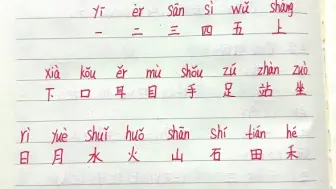 yī èr sān sì wǔ shàng
一 二 三 四 五 上
xià kǒu ěr mù shǒu zú zhàn zuò
下 口 耳 目 手 足 站 坐
rì yuè shuǐ huǒ shān shí tián hé
日 月 水 火 山 石 田 禾